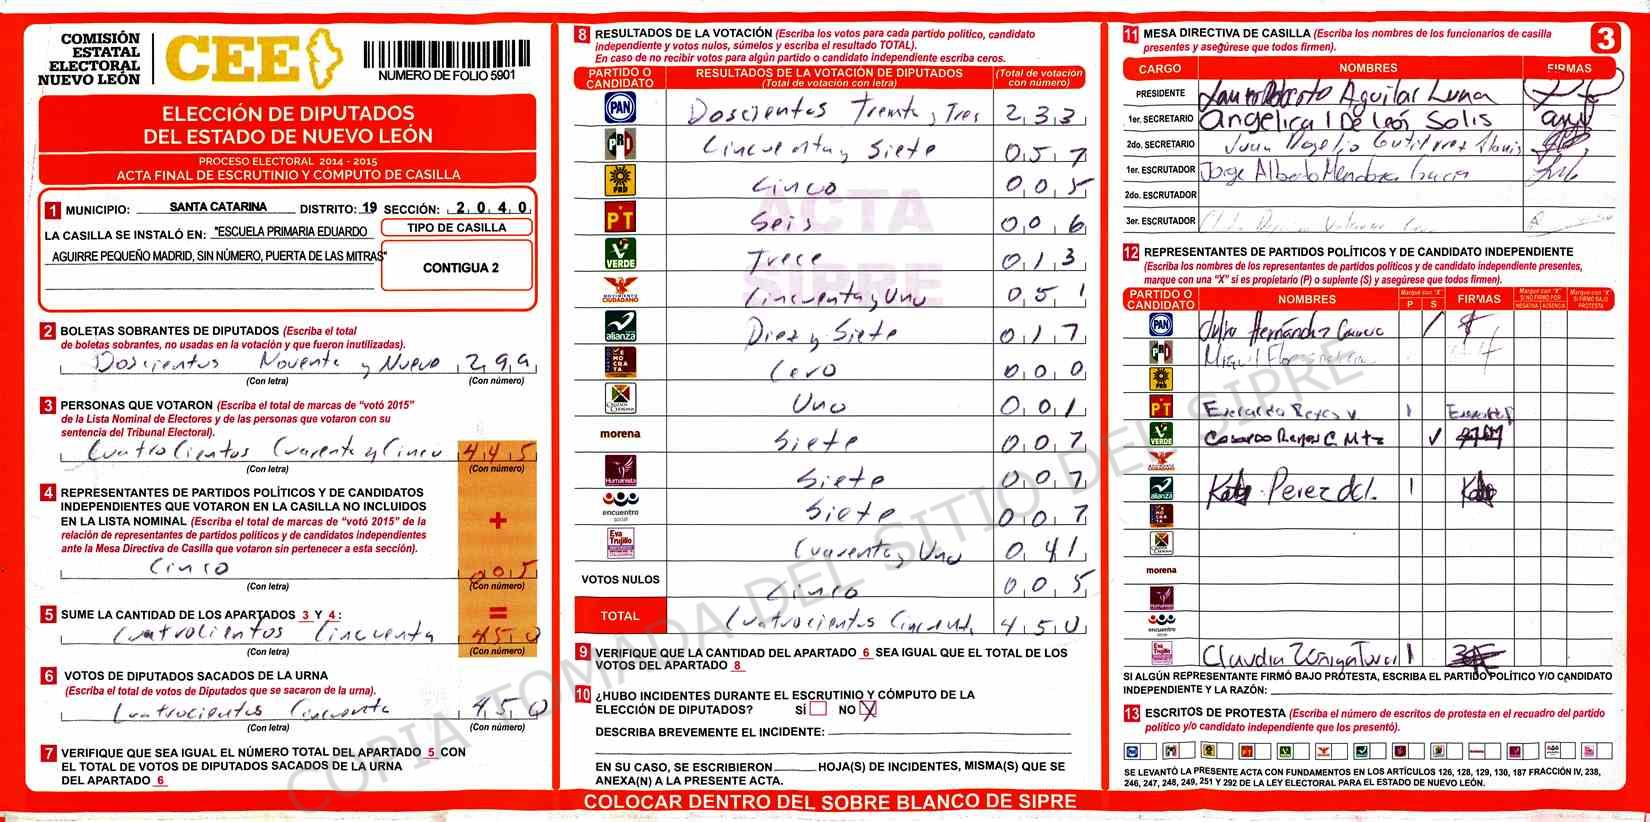 COMISIÓN
ESTATAL
ELECTORAL
NUEVO LEÓN
CEE
NUMERO DE FOLIO 5901
ELECCIÓN DE DIPUTADOS
DEL ESTADO DE NUEVO LEÓN
PROCESO ELECTORAL 2014 - 2015
ACTA FINAL DE ESCRUTINIO Y CÓMPUTO DE CASILLA
1 MUNICIPIO: SANTA CATARINA DISTRITO: 19 SECCIÓN: 2 0 4 0
LA CASILLA SE INSTALÓ EN: "ESCUELA PRIMARIA EDUARDO
AGUIRRE PEQUEÑO MADRID, SIN NÚMERO, PUERTA DE LAS MITRAS"
TIPO DE CASILLA
CONTIGUA 2
2 BOLETAS SOBRANTES DE DIPUTADOS (Escriba el total
de boletas sobrantes, no usadas en la votación y que fueron inutilizadas).
Doscientos Noventa y Nueve 2 9 9
(Con letra) (Con número)
3 PERSONAS QUE VOTARON (Escriba el total de marcas de "votó 2015"
de la Lista Nominal de Electores y de las personas que votaron con su
sentencia del Tribunal Electoral).
Cuatrocientos Cuarenta y Cinco 4 4 5
(Con letra) (Con número)
4 REPRESENTANTES DE PARTIDOS POLÍTICOS Y DE CANDIDATOS
INDEPENDIENTES QUE VOTARON EN LA CASILLA NO INCLUIDOS
EN LA LISTA NOMINAL (Escriba el total de marcas de "votó 2015" de la
relación de representantes de partidos políticos y de candidatos independientes
ante la Mesa Directiva de Casilla que votaron sin pertenecer a esta sección).
+
Cinco 0 0 5
(Con letra) (Con número)
=
5 SUME LA CANTIDAD DE LOS APARTADOS 3 Y 4:
Cuatrocientos Cincuenta 4 5 0
(Con letra) (Con número)
6 VOTOS DE DIPUTADOS SACADOS DE LA URNA
(Escriba el total de votos de Diputados que se sacaron de la urna).
Cuatrocientos Cincuenta 4 5 0
(Con letra) (Con número)
7 VERIFIQUE QUE SEA IGUAL EL NÚMERO TOTAL DEL APARTADO 5 CON
EL TOTAL DE VOTOS DE DIPUTADOS SACADOS DE LA URNA
DEL APARTADO 6
8 RESULTADOS DE LA VOTACIÓN (Escriba los votos para cada partido político, candidato
independiente y votos nulos, súmelos y escriba el resultado TOTAL).
En caso de no recibir votos para algún partido o candidato independiente escriba ceros.
PARTIDO O CANDIDATO RESULTADOS DE LA VOTACIÓN DE DIPUTADOS (Total de votación con letra) (Total de votación con número)
PAN Doscientos Treinta y Tres 2 3 3
PRI Cincuenta y Siete 0 5 7
PRD Cinco 0 0 5
PT Seis 0 0 6
VERDE Trece 0 1 3
MOVIMIENTO CIUDADANO Cincuenta y Uno 0 5 1
alianza Diez y Siete 0 1 7
DEMOCRATA Cero 0 0 0
CRUZADA CIUDADANA Uno 0 0 1
morena Siete 0 0 7
Humanista Siete 0 0 7
encuentro social Siete 0 0 7
Eva Trujillo Cuarenta y Uno 0 4 1
VOTOS NULOS Cinco 0 0 5
TOTAL Cuatrocientos Cincuenta 4 5 0
ACTA
SIPRE
9 VERIFIQUE QUE LA CANTIDAD DEL APARTADO 6 SEA IGUAL QUE EL TOTAL DE LOS
VOTOS DEL APARTADO 8
10 ¿HUBO INCIDENTES DURANTE EL ESCRUTINIO Y CÓMPUTO DE LA
ELECCIÓN DE DIPUTADOS? SÍ NO X
DESCRIBA BREVEMENTE EL INCIDENTE:
EN SU CASO, SE ESCRIBIERON HOJA(S) DE INCIDENTES, MISMA(S) QUE SE
ANEXA(N) A LA PRESENTE ACTA.
COLOCAR DENTRO DEL SOBRE BLANCO DE SIPRE
11 MESA DIRECTIVA DE CASILLA (Escriba los nombres de los funcionarios de casilla
presentes y asegúrese que todos firmen).
3
CARGO NOMBRES FIRMAS
PRESIDENTE Aguilar Luna
1er. SECRETARIO Angelica I De León Solis
2do. SECRETARIO Juan Rogelio Gutierrez
1er. ESCRUTADOR Jorge Alberto Mendoza Garcia
2do. ESCRUTADOR
3er. ESCRUTADOR
12 REPRESENTANTES DE PARTIDOS POLÍTICOS Y DE CANDIDATO INDEPENDIENTE
(Escriba los nombres de los representantes de partidos políticos y de candidato independiente presentes,
marque con una "X" si es propietario (P) o suplente (S) y asegúrese que todos firmen).
PARTIDO O CANDIDATO NOMBRES Marque con "X" P S FIRMAS Marque con "X" SI NO FIRMÓ POR NEGATIVA AUSENCIA Marque con "X" SI FIRMÓ BAJO PROTESTA
PAN Hernández
PRI
PRD
PT Reyes V.
VERDE Reyes C. Mtz
alianza Perez del.
morena
Humanista
encuentro social
Eva Trujillo Claudia
SI ALGÚN REPRESENTANTE FIRMÓ BAJO PROTESTA, ESCRIBA EL PARTIDO POLÍTICO Y/O CANDIDATO
INDEPENDIENTE Y LA RAZÓN:
13 ESCRITOS DE PROTESTA (Escriba el número de escritos de protesta en el recuadro del partido
político y/o candidato independiente que los presentó).
SE LEVANTÓ LA PRESENTE ACTA CON FUNDAMENTOS EN LOS ARTÍCULOS 126, 128, 129, 130, 187 FRACCIÓN IV, 238,
246, 247, 248, 249, 251 Y 292 DE LA LEY ELECTORAL PARA EL ESTADO DE NUEVO LEÓN.
COPIA TOMADA DEL SITIO DEL SIPRE